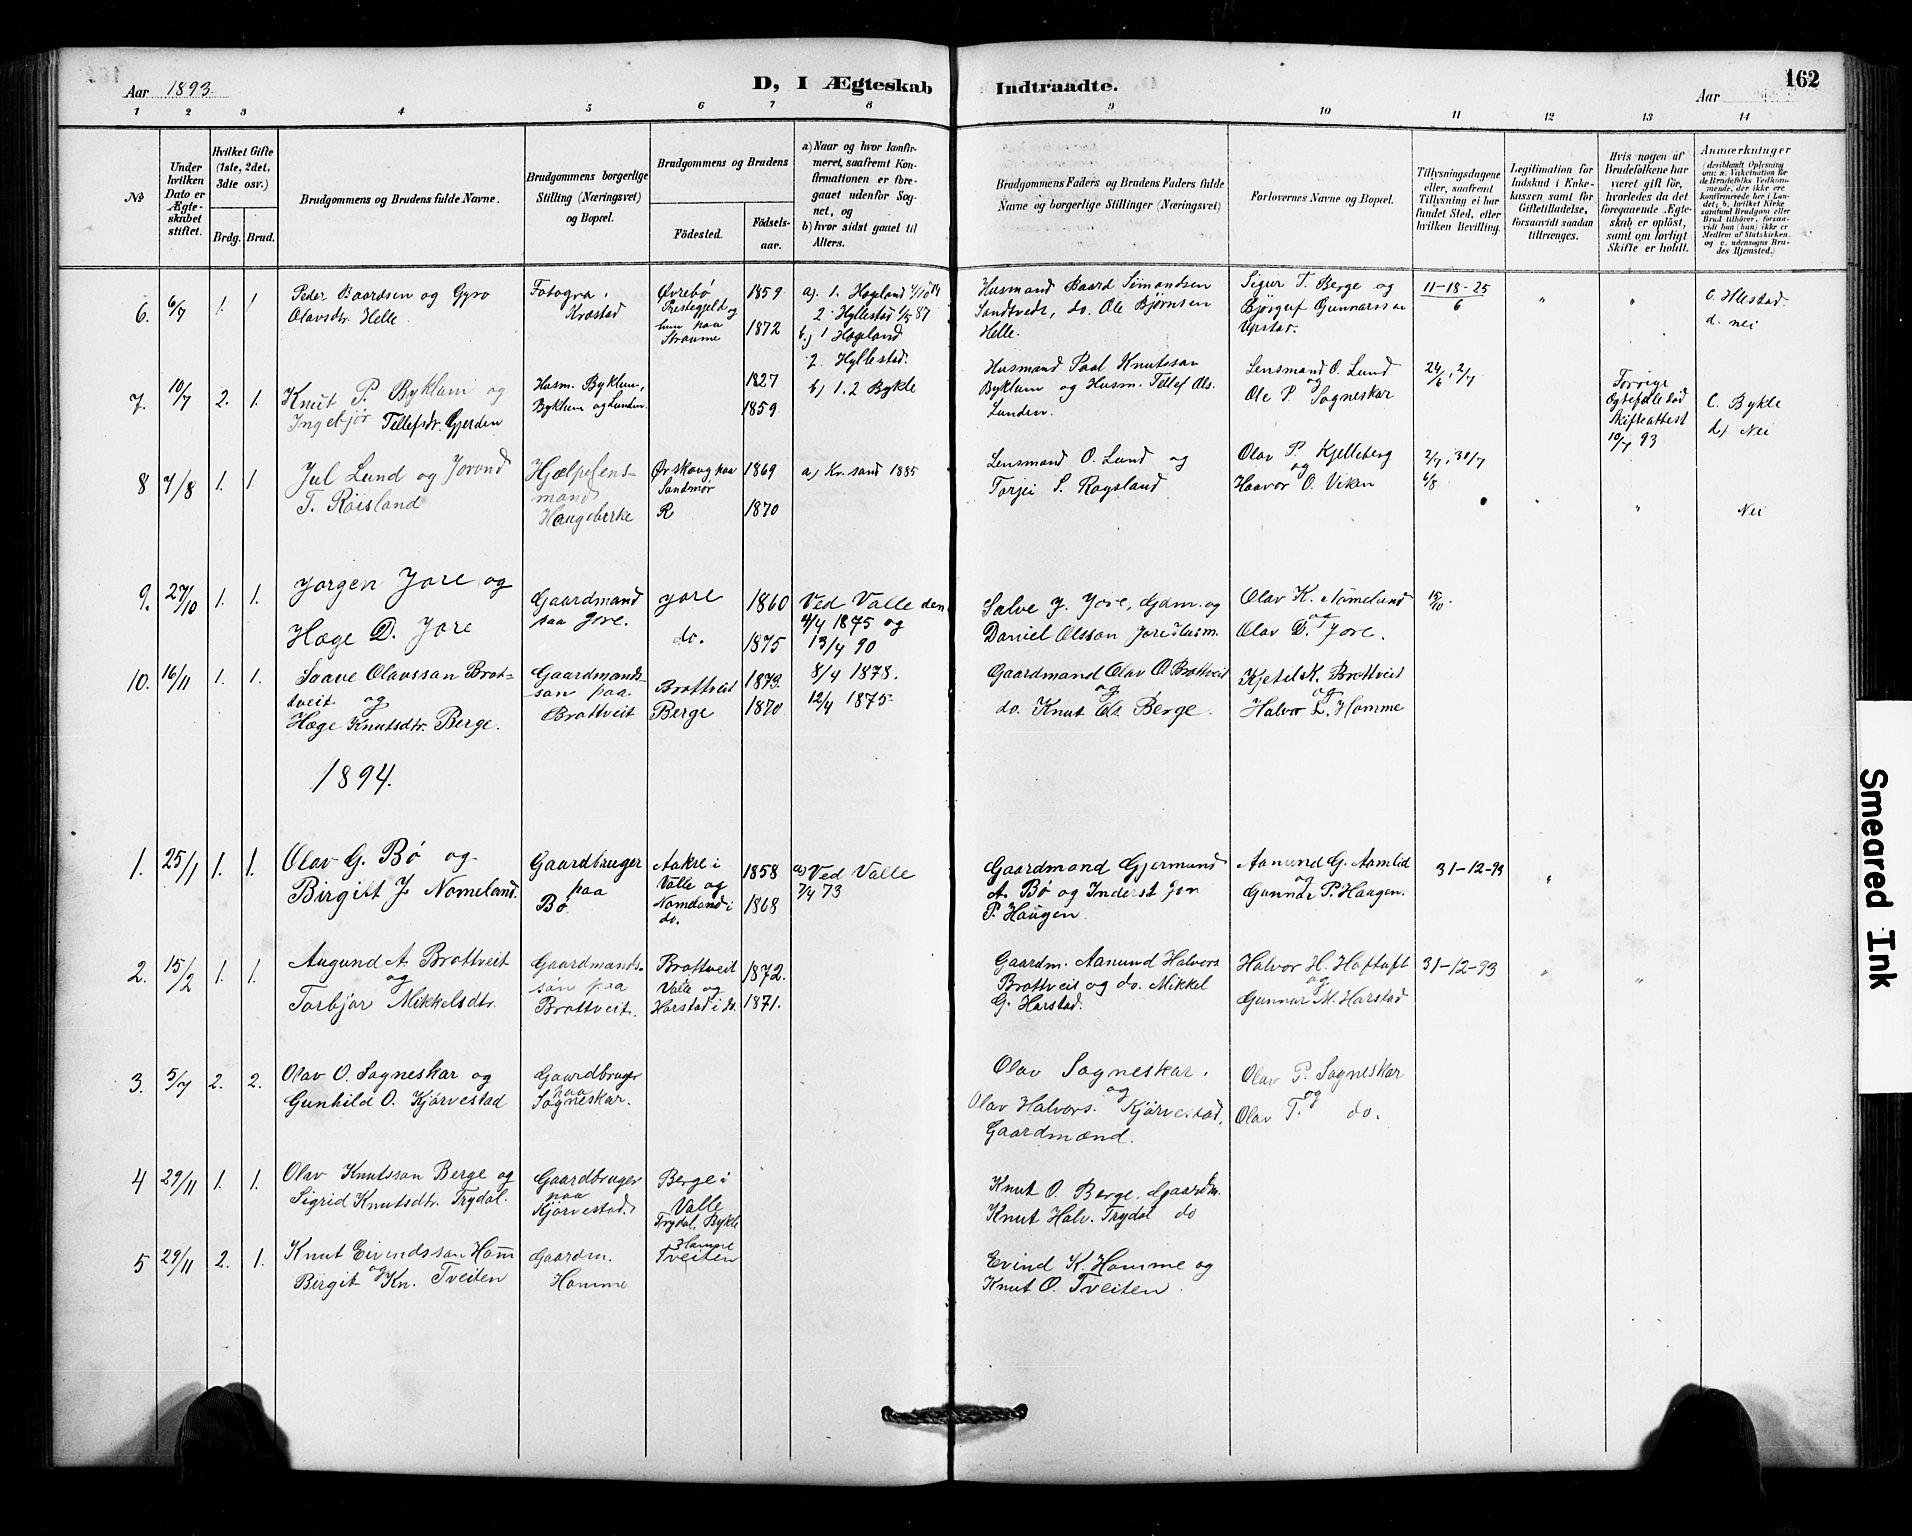 Aar 1893.
D, I Ægteskab Indtraadte.
Aar
162
1 2 3 4 5 6 7 8 9 10 11 12 13 14
No
Under hvilken Dato er Ægteskabet stiftet.
Hvilket Gifte (1ste, 2det, 3die osv.)
Brdg. Brud.
Brudgommens og Brudens fulde Navne.
Brudgommens borgerlige Stilling (Næringsvei) og Bopæl.
Brudgommens og Brudens
Fødested.
Fødselsaar.
a) Naar og hvor konfirmeret, saafremt Konfirmationen er foregaaet udenfor Sognet, og
b) hvor sidst gaaet til Alters.
Brudgommens Faders og Brudens Faders fulde Navne og borgerlige Stillinger (Næringsvei)
Forlovernes Navne og Bopæl.
Tillysningsdagene eller, saafremt Tillysning ei har fundet Sted, efter hvilken Bevilling.
Legitimation for Indskud i Enkekassen samt for Giftetilladelse, forsaavidt saadan tiltrænges.
Hvis nogen af Brudefolkene har været gift før, hvorledes da det foregaaende Ægteskab er opløst, samt om lovligt Skifte er holdt.
Anmærkninger
6. 6/7 1. 1.
Peder Baardsen og Gyro
Olavsdtr. Helle.
Fotogra.
Kvæstad
Øvrebø
Prestegjeld og
hun paa
Straume
1859
1872
a). 1. Hægeland
2 Hyllestad 6/5 87
b.) 1 Hægeland
2. Hyllestad.
Husmand Baard Simondsen
Sandtvedt, do. Ole Bjørnsen
Helle.
Sigur T. Berge og
Bjørguf Gunnarsson
Upstad.
11-18-25
6
" "
C. Hlestad.
d. nei
7. 10/7 2. 1.
Knut P. Byklum og
Ingebjør Tellefsdr. Gjerden
Husm. Byklum,
Byklum og Lunden.
1827
1859
b) 1. 2 Bykle
Husmand Paal Knutsson
Byklum og Husm. Tellef Ols.
Lunden.
Lensmand O. Lund
og
Ole P. Sogneskar
24/6, 2/7
Forrige
Egtefælle død
Skifteattest
10/7 93
C. Bykle
d) Nei
8 7/8 1. 1.
Jul Lund og Jorond
T. Røisland
Hjælpelens-
mand
Haugebirke
Ørskoug paa
Søndmør
R
1869
1870
a) Kr. sand 1885
Lensmand O. Lund og
Torjei S. Røysland
Olav P. Kjelleberg
og
Haavor O. Viken
2/7, 30/7
6/8
" "
Nei
9. 27/10 1. 1.
Jørgen Jore og
Hæge D. Jore
Gaardmand
paa Jore.
Jore
do.
1860
1875
Ved Valle den
4/4 1875 og
13/4 90
Salve J. Jore, Gdm. og
Daniel Olsson Jore Husm.
Olav K. Nomeland
og
Olav D. Jore.
15/10.
10. 16/11 1. 1.
Saave Olavsson Brot-
tveit og
Hæge Knutsdtr. Berge.
Gaardmands-
søn paa
Brottveit
Brottveit
Berge
1873.
1870
8/4 1878.
12/4 1875.
Gaardmand Olav O. Brottveit
og
do. Knut Ols. Berge.
Kjetil K. Brottveit
og
Halvor L. Homme
1894.
1. 25/1 1. 1.
Olav G. Bø og
Birgitt J. Nomeland.
Gaardbruger
paa
Bø.
Aakre i
Valle og
Nomeland i
do.
1858
1868
a) Ved Valle
7/4 73
Gaardmand Gjermund
A. Bø og Inderst Jon
P. Haugen.
Aanund G. Aamlid
og
Gunnar P. Haugen.
31-12-93
"
2. 15/2 1. 1.
Augund A. Brottveit
og
Torbjør Mikkelsdtr.
Gaardmands-
søn paa
Brottveit.
Brottveit
Valle og
Harstad i do.
1872.
1871.
Gaardm. Aanund Halvors
Brottveit og do. Mikkel
G. Harstad.
Halvor H. Hoftuft
og
Gunnar M. Harstad
31-12-93
" "
3. 5/7 2. 2.
Olav O. Sogneskar og
Gunhild O. Kjørvestad
Gaardbruger
paa
Sogneskar.
Olav Sogneskar.
og
Olav Halvors. Kjørvestad,
Gaardmænd.
Olav P. Sogneskar
og
Olav T. do.
4 29/11 1. 1.
Olav Knutsson Berge og
Sigrid Knutsdtr. Trydal.
Gaardbruger
paa
Kjørvestad.
Berge i
Valle
Trydal, Bykle
Knut O. Berge. Gaardm.
Knut Halv. Trydal do
5 29/11 2. 1.
Knut Eivindsson Hom̄
og
Birgit Kn. Tveiten
Gaardm.
Homme
Homme
Tveiten
Evind K. Homme og
Knut O. Tveiten.
Smeared Ink